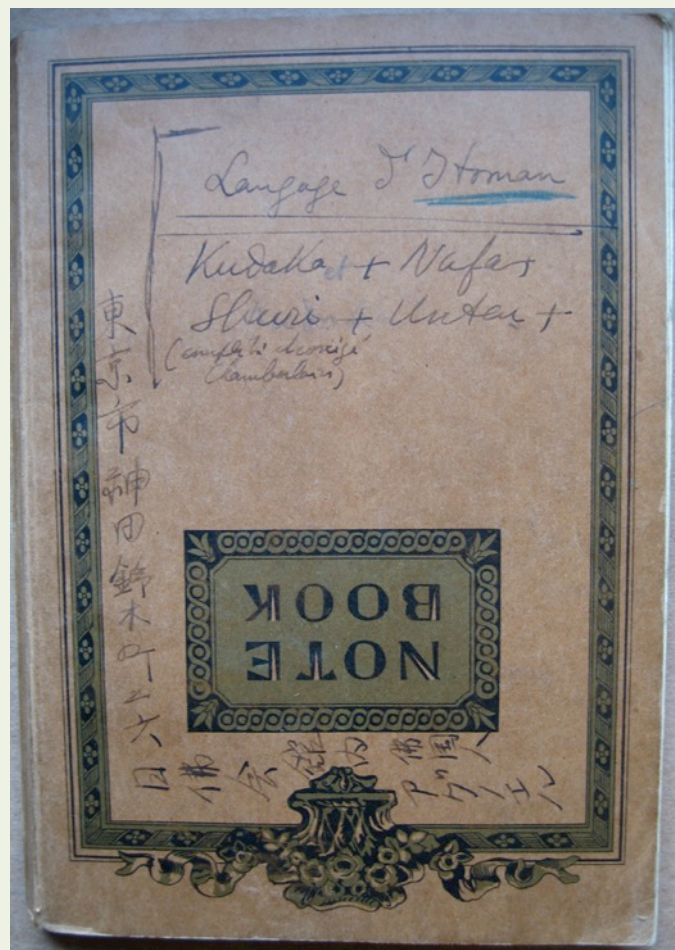 Langage d'Itoman
Kudaka + Nafa +
Shuri + Unten +
Chamberlain)
東京市神田鈴木町二六
日佛会館内 佛国人
アグノエル
NOTE
BOOK